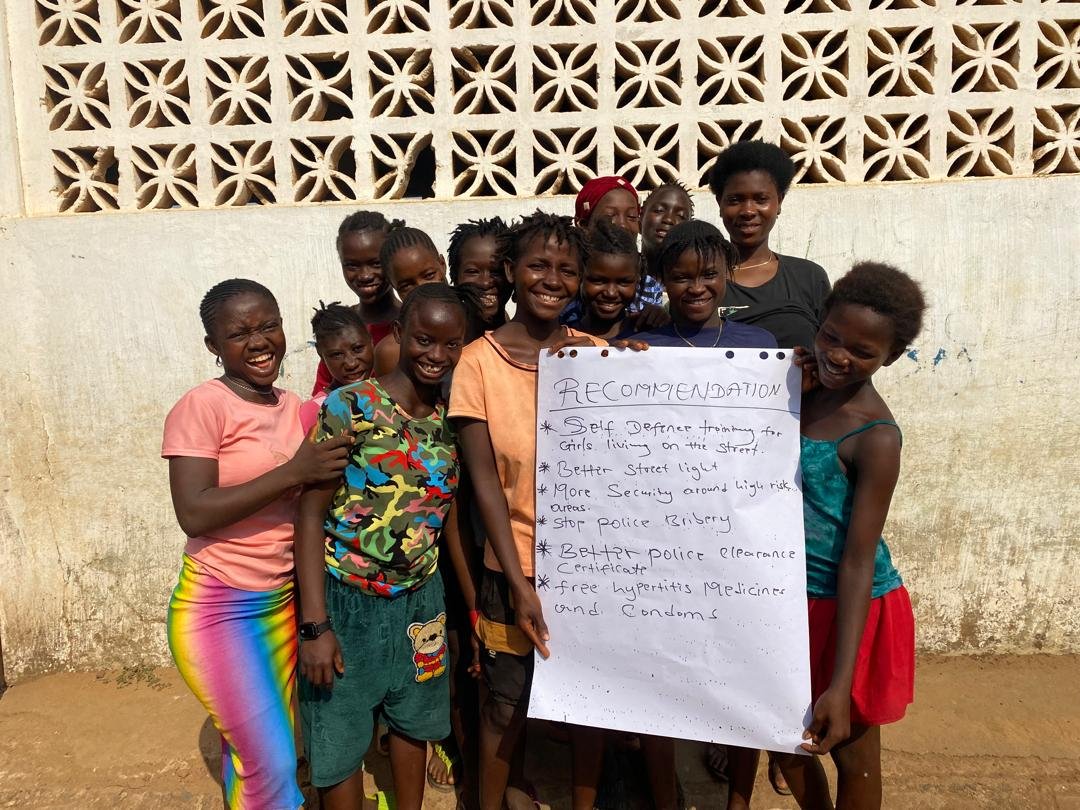 RECOMMENDATION
* Self Defence training for
Girls living on the street.
* Better Street light
* More Security around high risk
areas.
* Stop police Bribery
* Better police clearance
Certificate
* free hypertitis Medicines
and Condoms